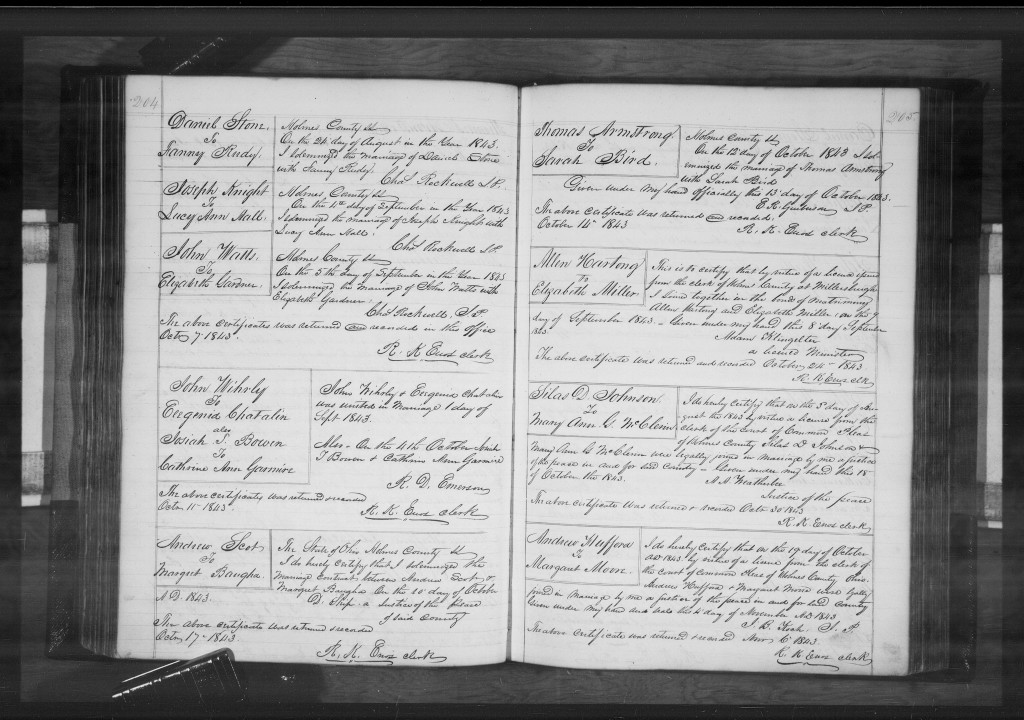 204
Daniel Stone
To
Fanny Rudy.
Holmes County ss
On the 24 day of August in the Year 1843.
I solemnized the marriage of Daniel Stone
with Fanny Rudy.
Chas Rockwell J P.
Joseph Knight
To
Lucy Ann Nall
Holmes County ss
On the 1st day of September in the Year 1843
I solemnized the marriage of Joseph Knight with
Lucy Ann Nall.
Chas Rockwell J P.
John Watts.
To
Elizabeth Gardner.
Holmes County ss
On the 5th day of September in the Year 1843
I solemnized the marriage of John Watts with
Elizabeth Gardner.
Chas Rockwell. J P.
The above certificates was returned and recorded in the office
Octr 7 1843.
R. K Enos clerk
John Wihrly
To
Eugenia Chatalin
also
Josiah T. Bowen
To
Catherine Ann Garmire
John Wihrly & Eugenia Chatalin
was united in Marriage 1 day of
Sept. 1843.
Also - On the 4th October
T Bowen & Catharine Ann Garmire
R. D. Emerson
The above certificates was returned & recorded
Octr 11th 1843.
R. K. Enos clerk
Andrew Scot
To
Margret Baugha.
A D. 1843.
The State of Ohio Holmes County ss
I do hereby certify that I solemnized the
Marriage contract between Andrew Scot &
Margret Baugha On the 10 day of October
D. Shife a Justice of the Peace
of said County
The above certificate was returned & recorded
Octr 17th 1843.
R. K. Enos clerk
205
Thomas Armstrong.
To
Sarah Bird.
Holmes County ss
On the 12 day of October 1843 I sol-
emnized the marriage of Thomas Armstrong
with Sarah Bird
Given under my hand officially this 13 day of October 1843.
J P.
The above certificate was returned and recorded.
October 14th 1843
R. K. Enos clerk
Allen Hartong
To
Elizabeth Miller
This is to certify that by virtue of a licence issued
from the clerk of Holmes County at Millersburgh
I joined together in the bonds of matrimony
Allen Hartong and Elizabeth Miller, on the 7
day of September 1843. - Given under my hand this 8 day September
1843.
Adam Klingelter
a licenced Minister
The above certificate was returned and recorded October 24th 1843
R. K Enos clk
Silas D Johnson.
To
Mary Ann G. McClewin
I do hereby certify that on the 3d day of Au-
gust the 1843 by virtue a licence from the
clerk of the court of Common Pleas
of Holmes County Silas D Johnson &
Mary Ann G McClewin were legally joined in marriage by me a justice
of the peace in and for said County - Given under my hand this 18
of October the 1843.
Justice of the peace
The above certificate was returned & recorded Octr 30 1843
R. K. Enos clerk
Andrew Hufford
To
Margaret Moore.
I do hereby certify that on the 19 day of October
AD 1843 by virtue of a licence from the clerk of
the court of common Pleas of Holmes County Ohio.
Andrew Hufford & Margaret Moore were legally
joined in Marriage by me a justice of the peace in and for said County
Given under my hand and seal this 4 day of November AD 1843
J. B. Koch. J. P.
The above certificate was returned & recorded Novr 6th 1843
R. K Enos clerk